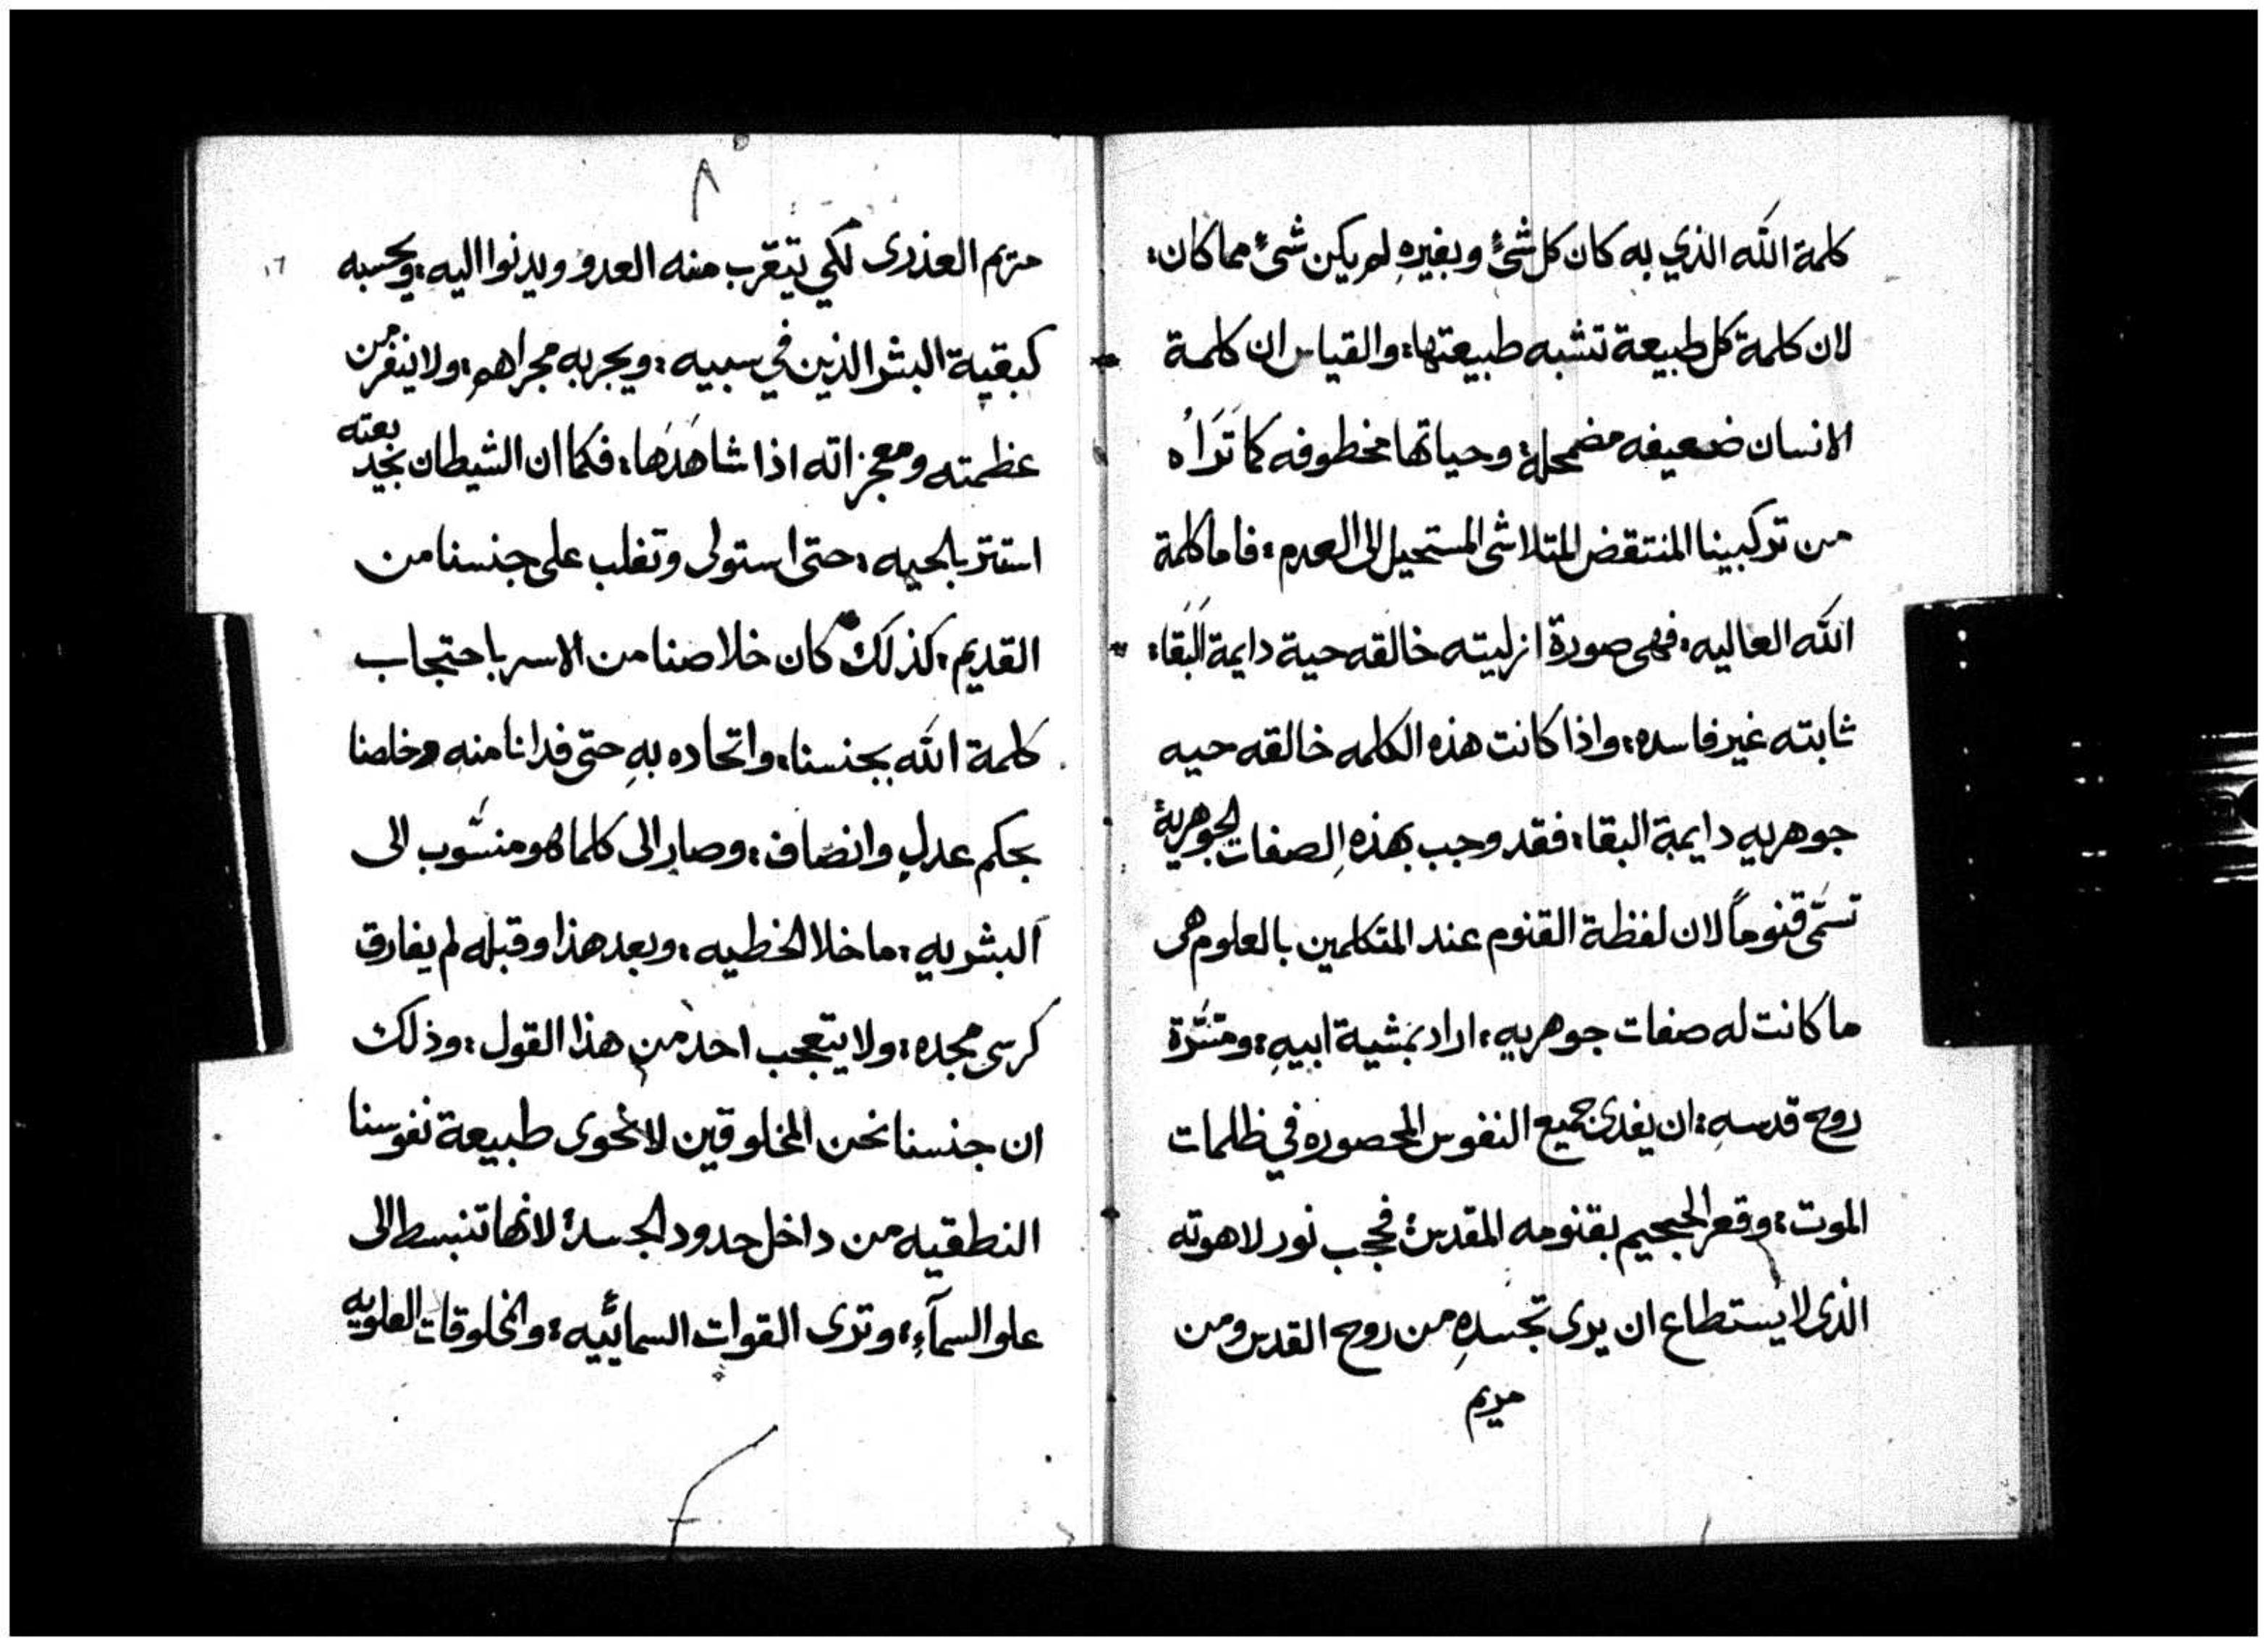 كلمة الله الذي به كان كل شئ وبغيرهِ لم يكن شئ مما كان:
لان كلمة كل طبيعة تشبه طبيعتها: والقياس ان كلمة
الانسان ضعيفه مضمحله: وحياتها مخطوفه كما تَرَاُه
من تركيبنا المنتقض المتلاشى المستحيل الى العدم: فاما كلمة
الله العاليه: فهى صورة ازليته خالقه حية دايمة البقا:
ثابته غير فاسده: واذا كانت هذه الكلمه خالقه حيه
جوهريه دايمة البقا: فقد وجب بهذهِ الصفات الجوهرية
تسمّى قنوماً لان لفظة القنوم عند المتكلمين بالعلوم هى
ما كانت له صفات جوهريه: اراد بمشية ابيهِ: ومسَّرة
روح قدسهِ: ان يفدى جميع النفوس المحصوره في ظلمات
الموت: وقعر الجحيم بقنومه المقدس: فحجب نور لاهوته
الذى لا يستطاع ان يرى تجسدهِ من روح القدس ومن
مريم
٨
١٦
مريم العذرى لكي يتقرب منه العدو ويدنوا اليه: ويحسبه
كبقية البشر الذين في سبيه: ويجربه مجراهم: ولا ينفر من
عظمته ومعجزاته اذا شاهَدَها: فكما ان الشيطان بخديعته
استتر بالحيه: حتى استولى وتغلب على جنسنا من
القديم: كذلك كان خلاصنا من الاسر باحتجاب
كلمة الله بجنسنا: واتحاده بهِ حتى فدانا منه وخلصنا
بحكم عدلٍ وانصاف: وصار الى كلما هو منسُوب الى
البشريه: ما خلا الخطيه: وبعد هذا وقبله لم يفارق
كرسى مجده: ولا يتعجب احد من هذا القول: وذلك
ان جنسنا نحن المخلوقين لا تحوى طبيعة نفوسنا
النطقيه من داخل حدود الجسد: لانها تنبسط الى
علو السمآءِ: وترى القوات السمائيه: والمخلوقات العلويه